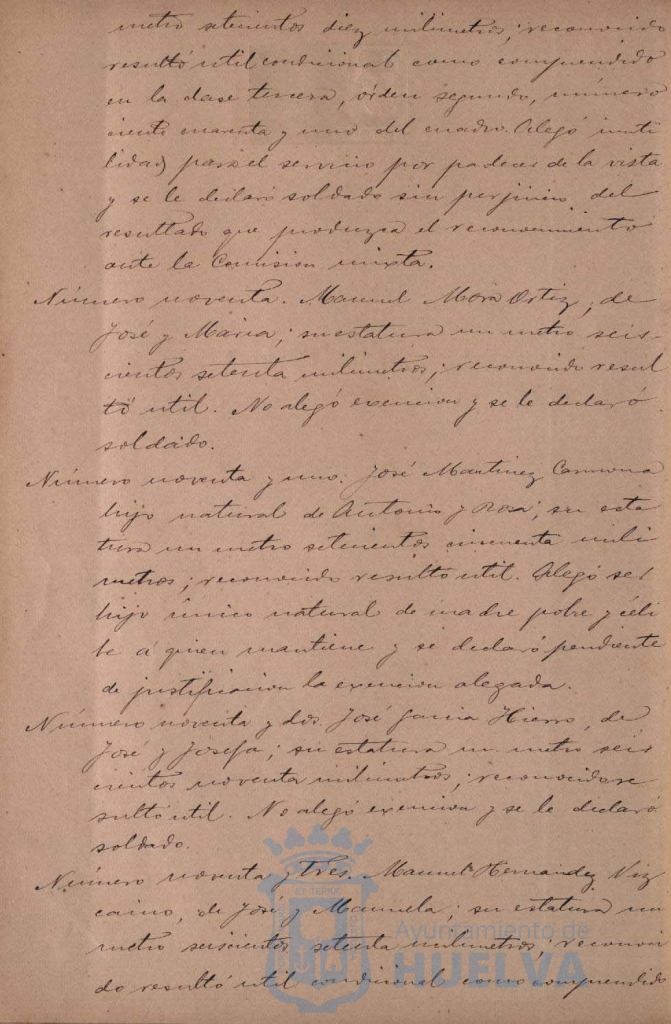 metro setecientos diez milimetros; reconocido
resultó util condicional como comprendido
en la clase tercera, orden segundo, número
ciento cuarenta y uno del cuadro. Alegó inuti
lidad para el servicio por padecer de la vista
y se le declaró soldado sin perjuicio del
resultado que produzca el reconocimiento
ante la Comision mixta.
Número noventa. Manuel Mora Ortiz, de
José y Maria; su estatura un metro seis-
cientos setenta milimetros; reconocido resul
tó util. No alegó exencion y se le declaró
soldado.
Número noventa y uno. José Martinez Carmona
hijo natural de Antonio y Rosa; su esta
tura un metro setecientos cincuenta mili
metros; reconocido resultó util. Alegó ser
hijo único natural de madre pobre y céli
be á quien mantiene y se declaró pendiente
de justificacion la exencion alegada.
Número noventa y dos. José Garcia Hierro, de
José y Josefa; su estatura un metro seis
cientos noventa milimetros; reconocido re
sultó util. No alegó exencion y se le declaró
soldado.
Número noventa y tres. Manuel Hernandez Viz
caino, de José y Manuela; su estatura un
metro seiscientos setenta milimetros; reconoci
do resultó util condicional como comprendido
Ayuntamiento de
HUELVA